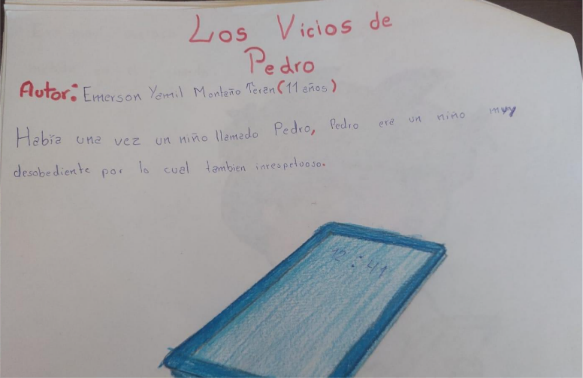 Los Vicios de
Pedro
Autor: Emerson Yamil Montaño Terán (11 años)
Había una vez un niño llamado Pedro, Pedro era un niño muy
desobediente por lo cual tambien irrespetuoso.
12:41